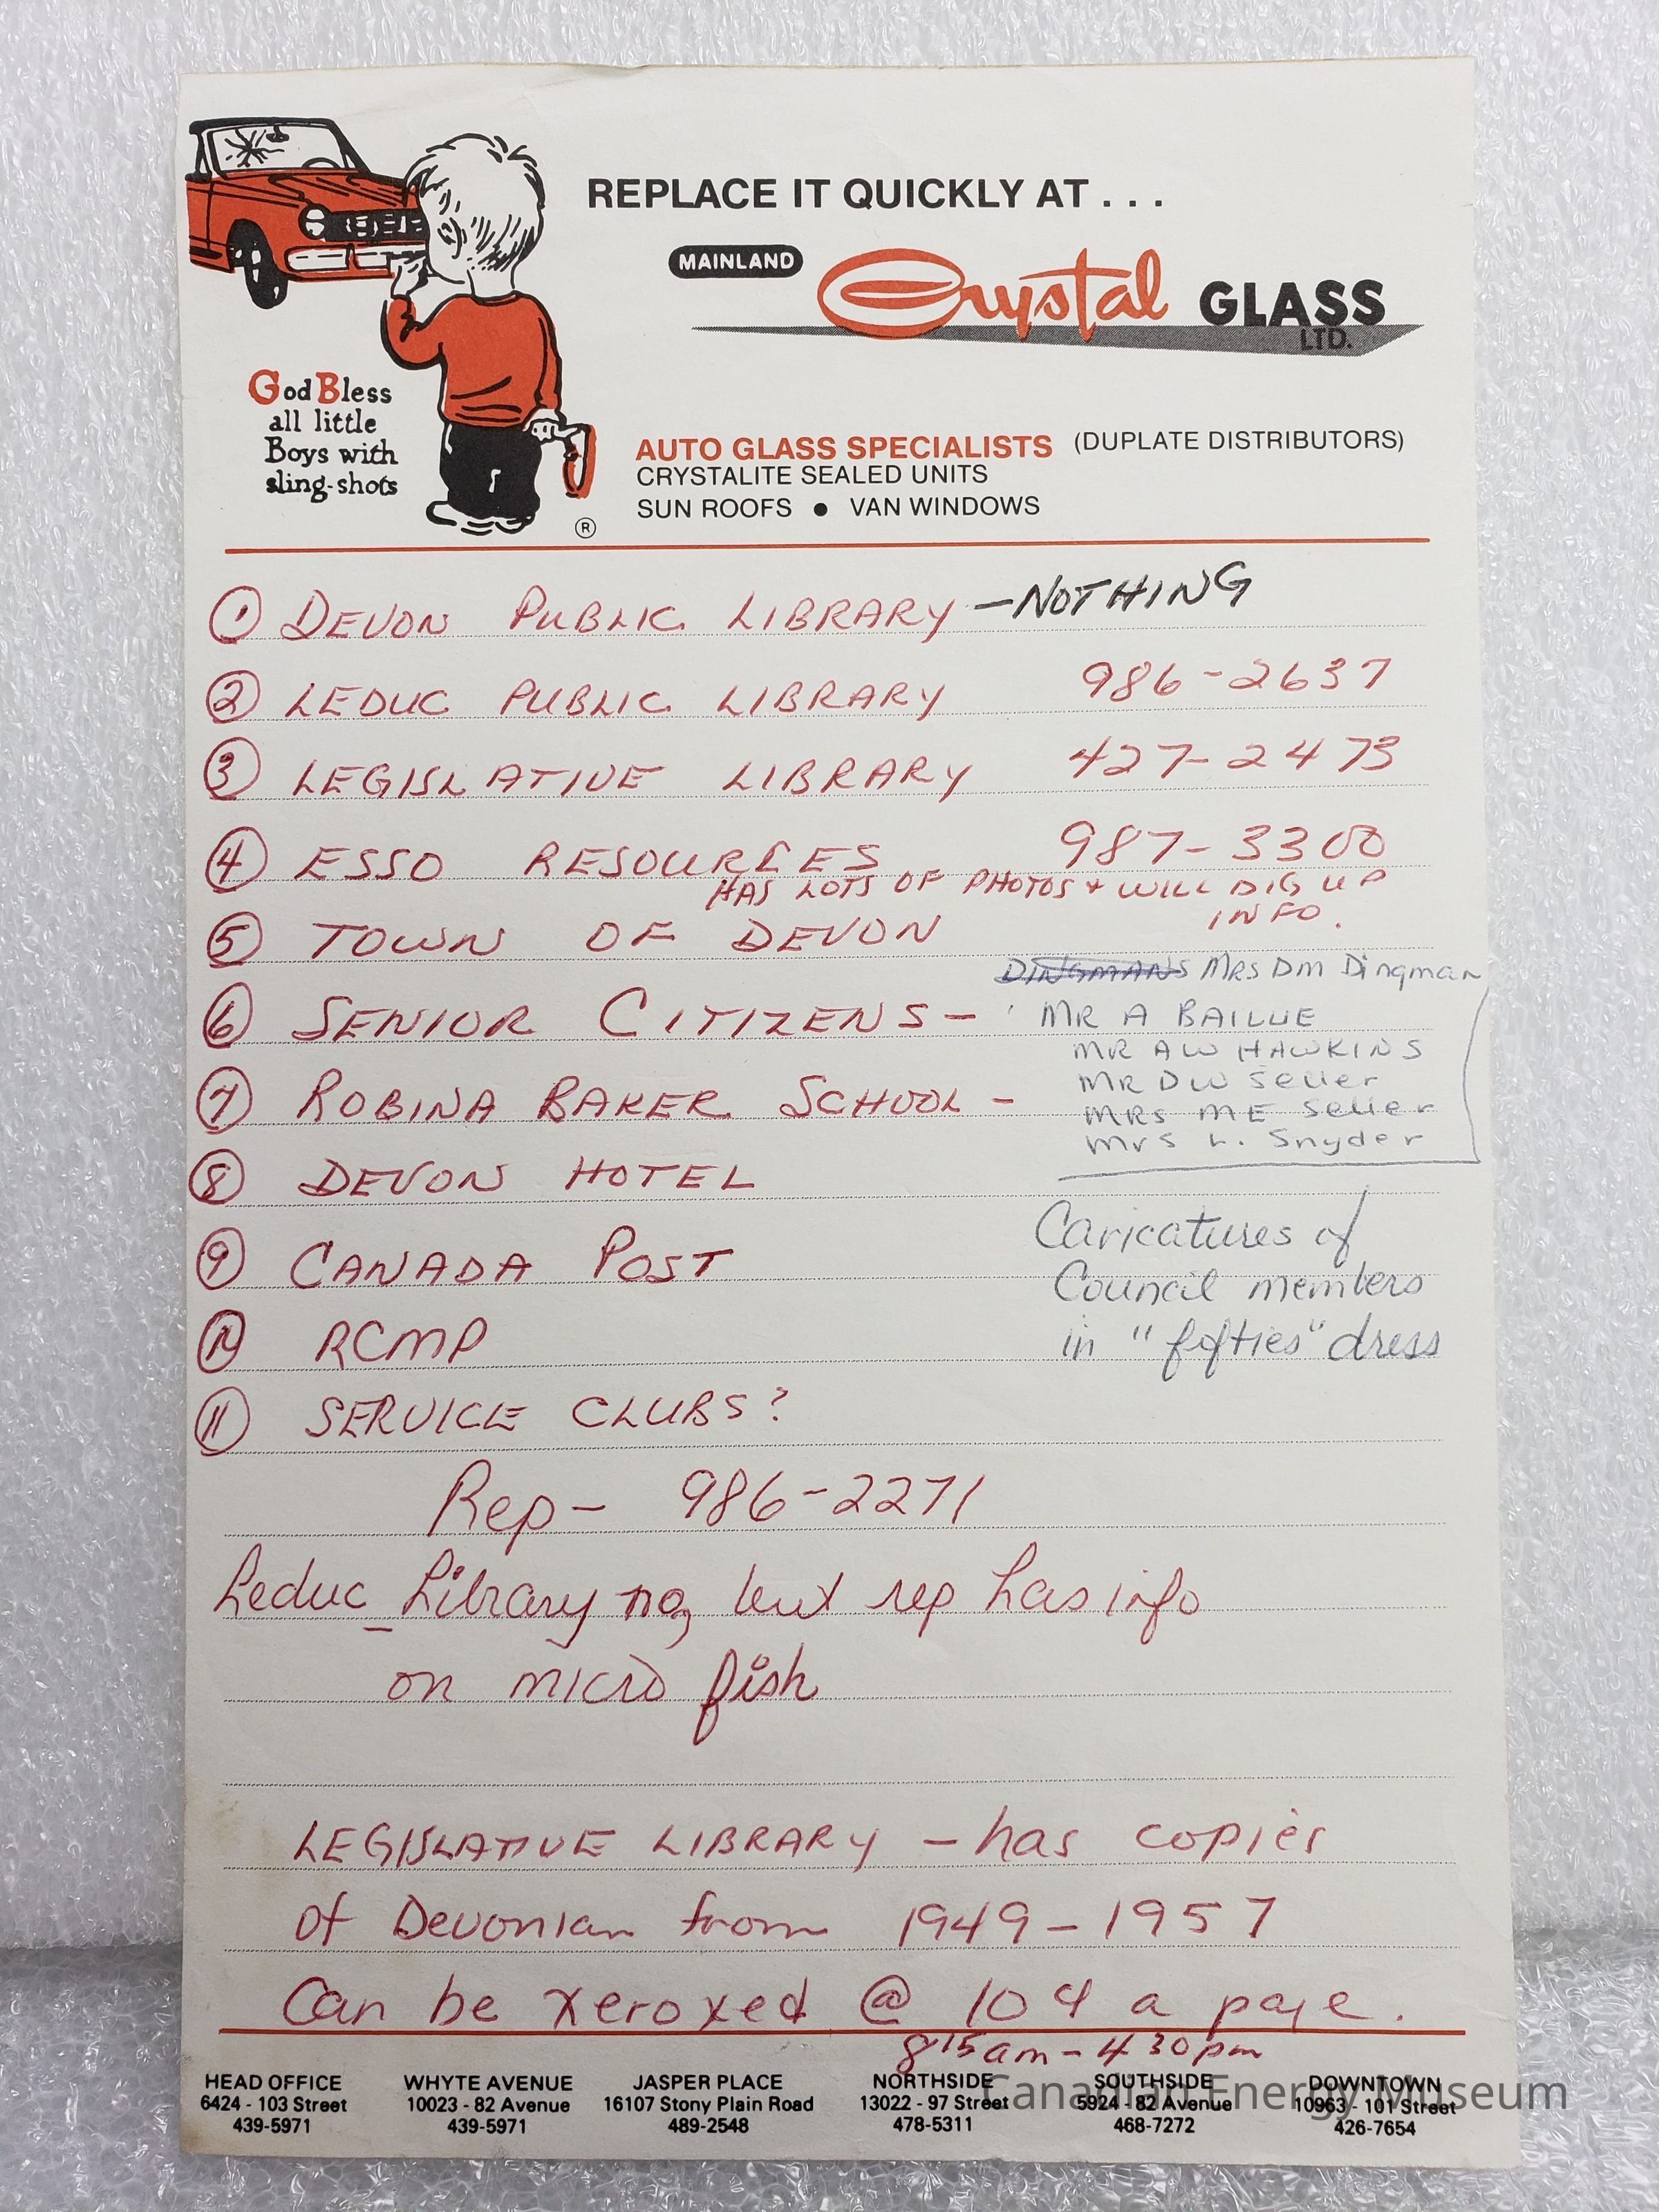 REPLACE IT QUICKLY AT . . .
MAINLAND Crystal GLASS LTD.
God Bless
all little
Boys with
sling-shots
®
AUTO GLASS SPECIALISTS (DUPLATE DISTRIBUTORS)
CRYSTALITE SEALED UNITS
SUN ROOFS ● VAN WINDOWS
① DEVON PUBLIC LIBRARY - NOTHING
② LEDUC PUBLIC LIBRARY 986-2637
③ LEGISLATIVE LIBRARY 427-2473
④ ESSO RESOURCES 987-3300
HAS LOTS OF PHOTOS + WILL DIG UP
INFO.
⑤ TOWN OF DEVON
DINGMANS MRS DM Dingman
⑥ SENIOR CITIZENS - MR A BAILLIE
MR AW HAWKINS
MR DW Seller
⑦ ROBINA BAKER SCHOOL -
MRS ME Seller
Mrs L. Snyder
⑧ DEVON HOTEL
Caricatures of
⑨ CANADA POST
Council members
⑩ RCMP
in "fifties" dress
⑪ SERVICE CLUBS?
Rep - 986-2271
Leduc Library no, but rep has info
on micro fish
LEGISLATIVE LIBRARY - has copies
of Devonian from 1949-1957
Can be xeroxed @ 10¢ a page.
8 15 am - 4 30 pm
HEAD OFFICE WHYTE AVENUE JASPER PLACE NORTHSIDE SOUTHSIDE DOWNTOWN
6424 - 103 Street 10023 - 82 Avenue 16107 Stony Plain Road 13022 - 97 Street 5924 - 82 Avenue 10963 - 101 Street
439-5971 439-5971 489-2548 478-5311 468-7272 426-7654
Canadian Energy Museum